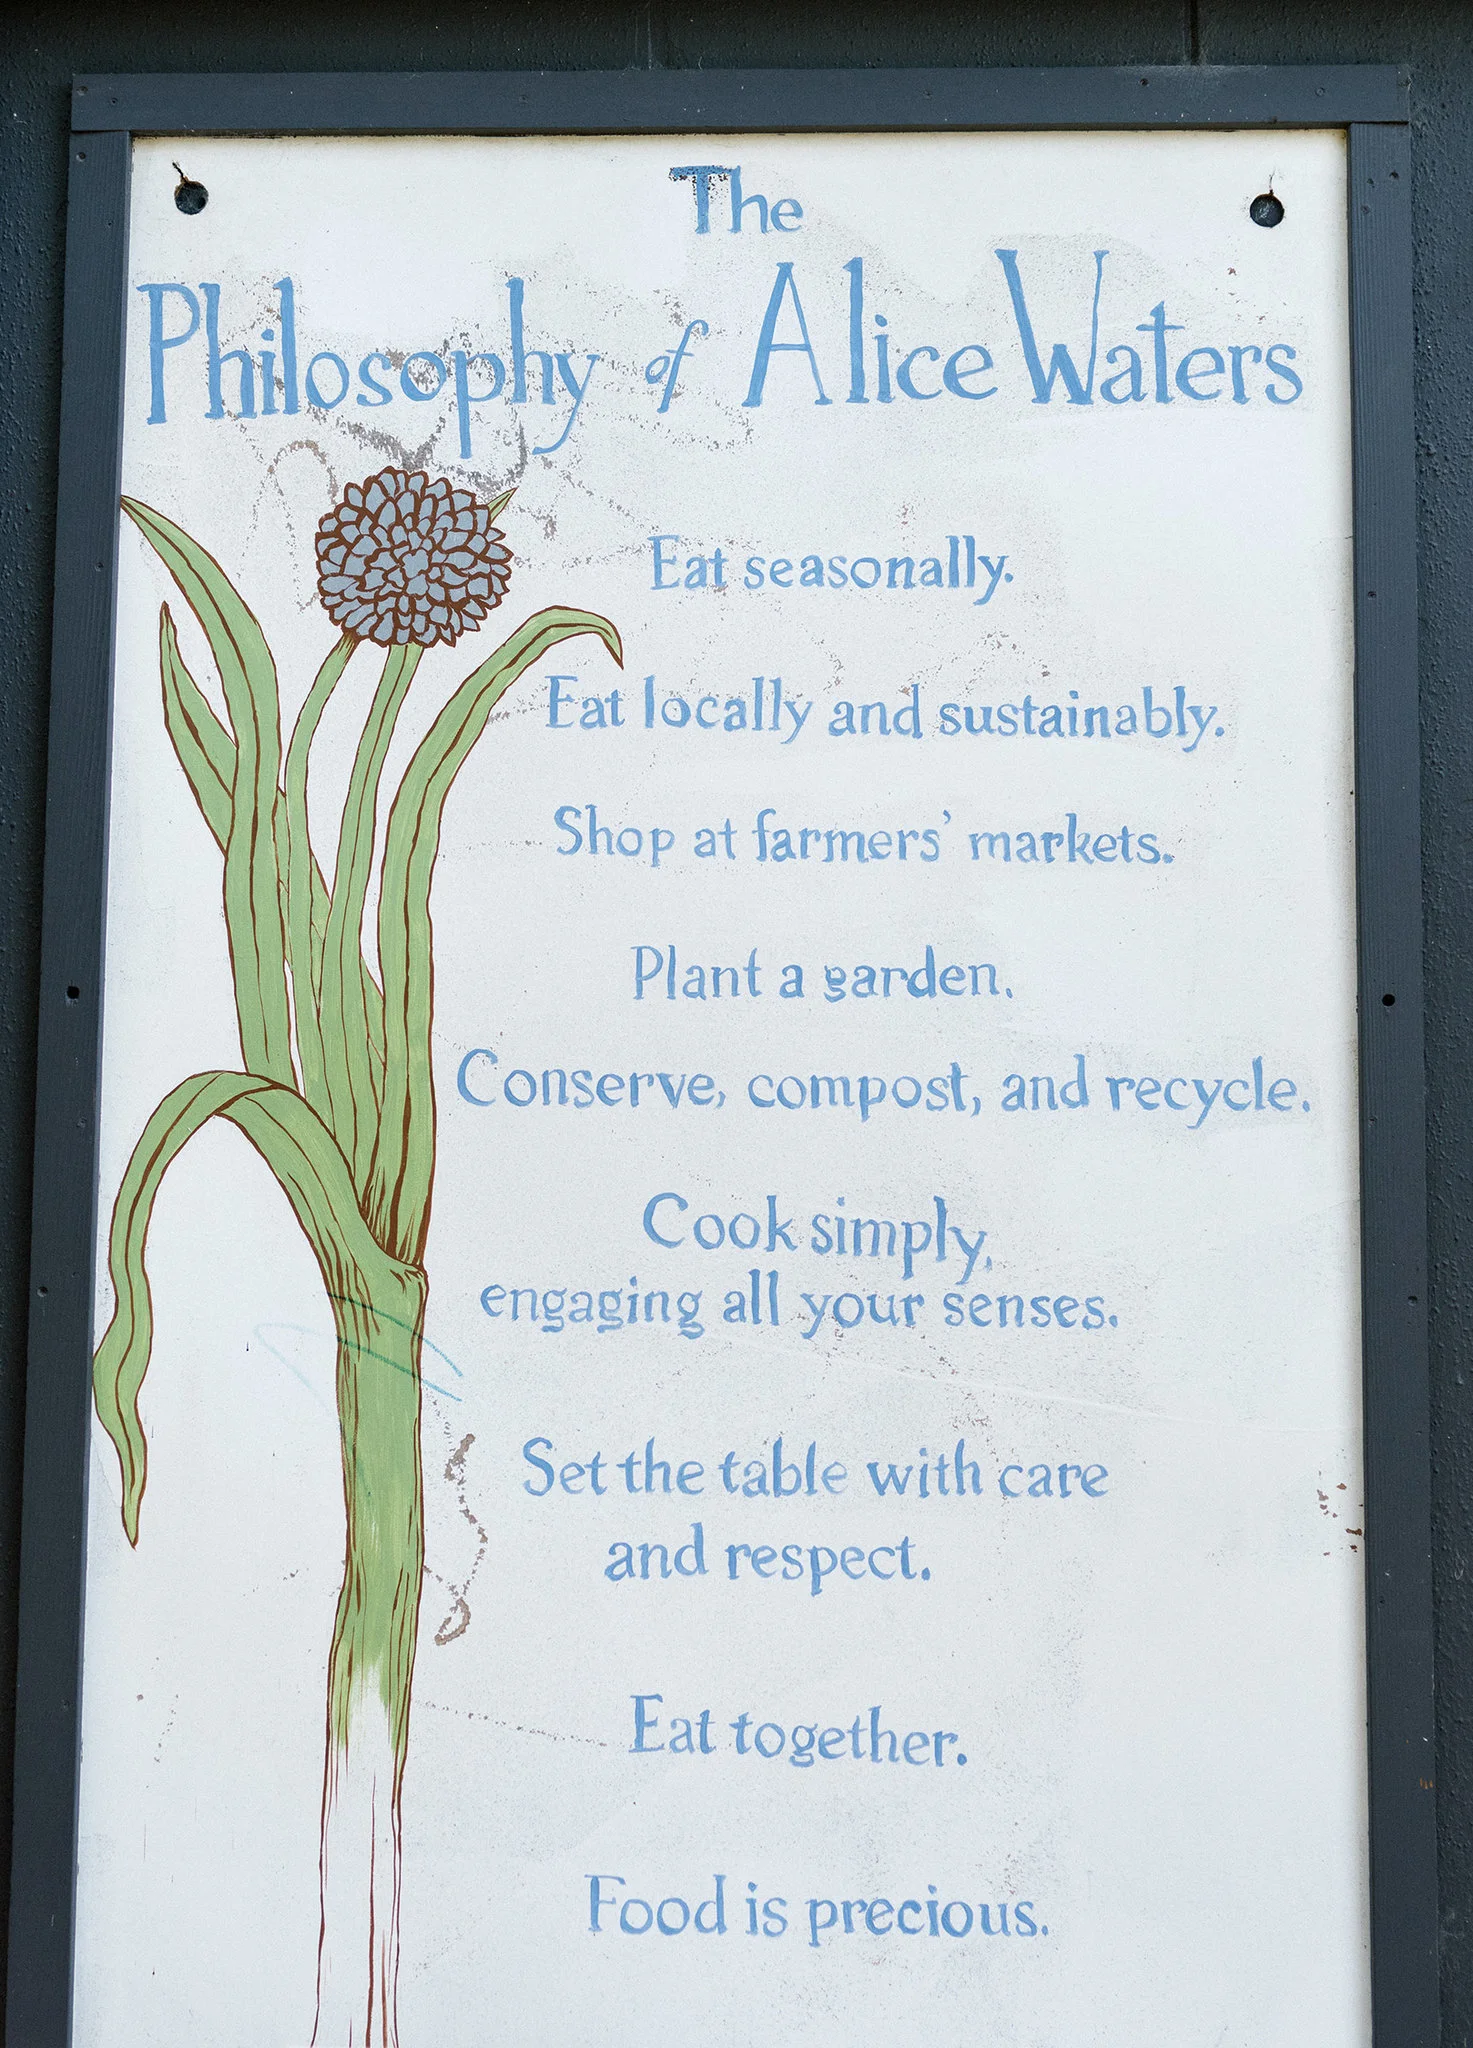 The
Philosophy of Alice Waters
Eat seasonally.
Eat locally and sustainably.
Shop at farmers' markets.
Plant a garden.
Conserve, compost, and recycle.
Cook simply,
engaging all your senses.
Set the table with care
and respect.
Eat together.
Food is precious.